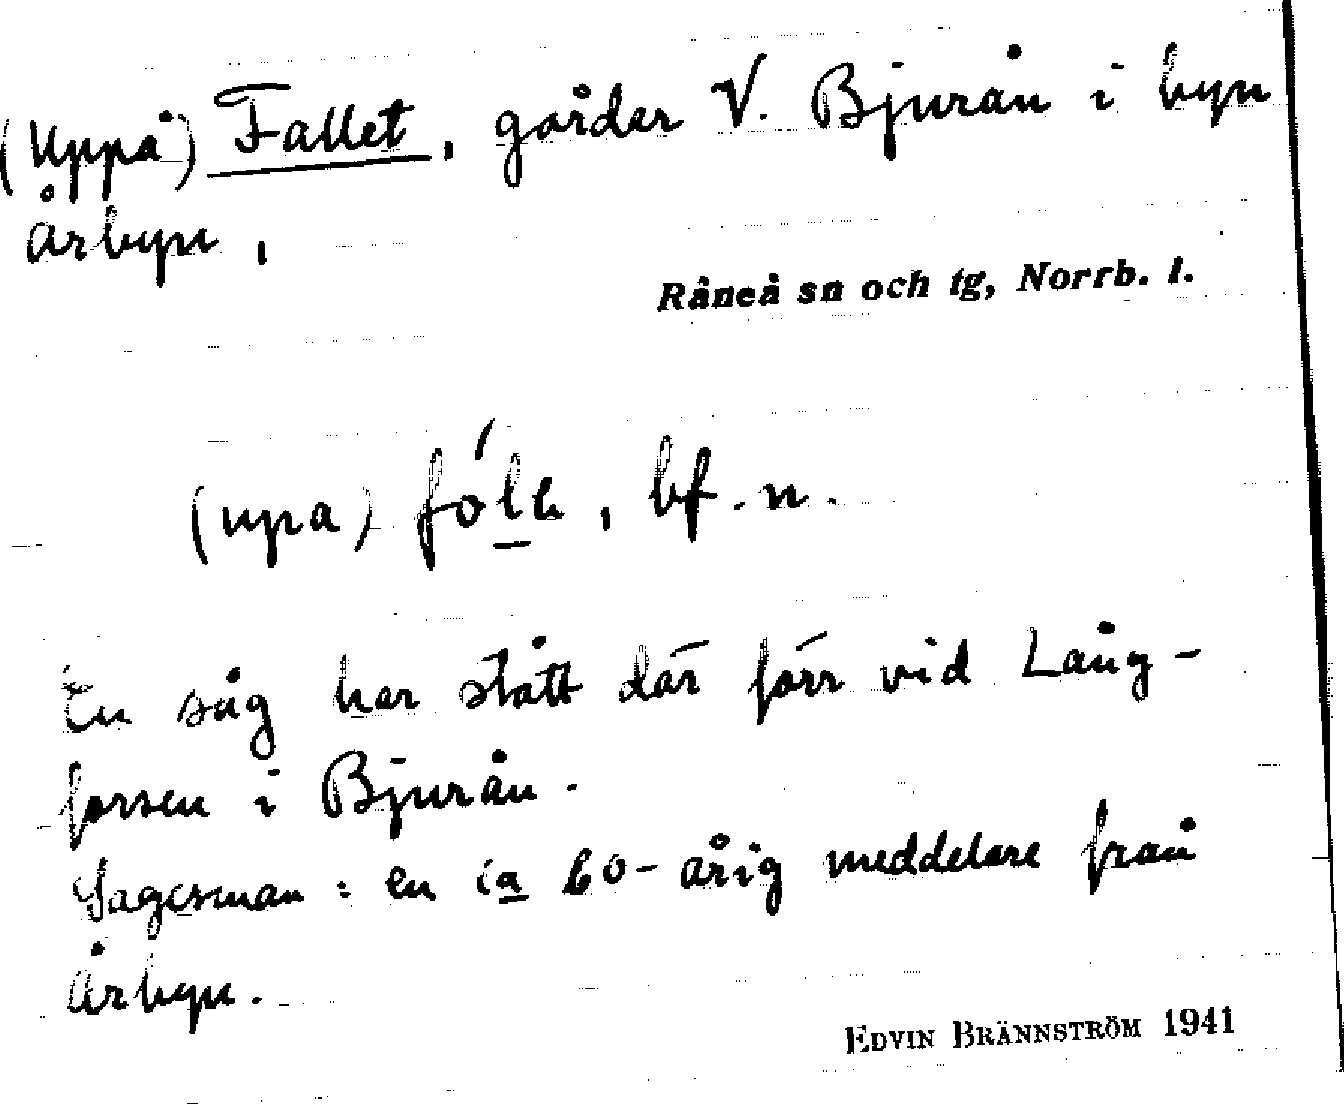 (Uppå) Fallet, gårdar V. Bjurån i byn
Årbyn,
Råneå sn och tg, Norrb. l.
(upa) , bf. n.
En såg har stått där förr vid Lång-
forsen i Bjurån.
Sagesman: en ca 60-årig meddelare från
Årbyn.
EDVIN BRÄNNSTRÖM 1941